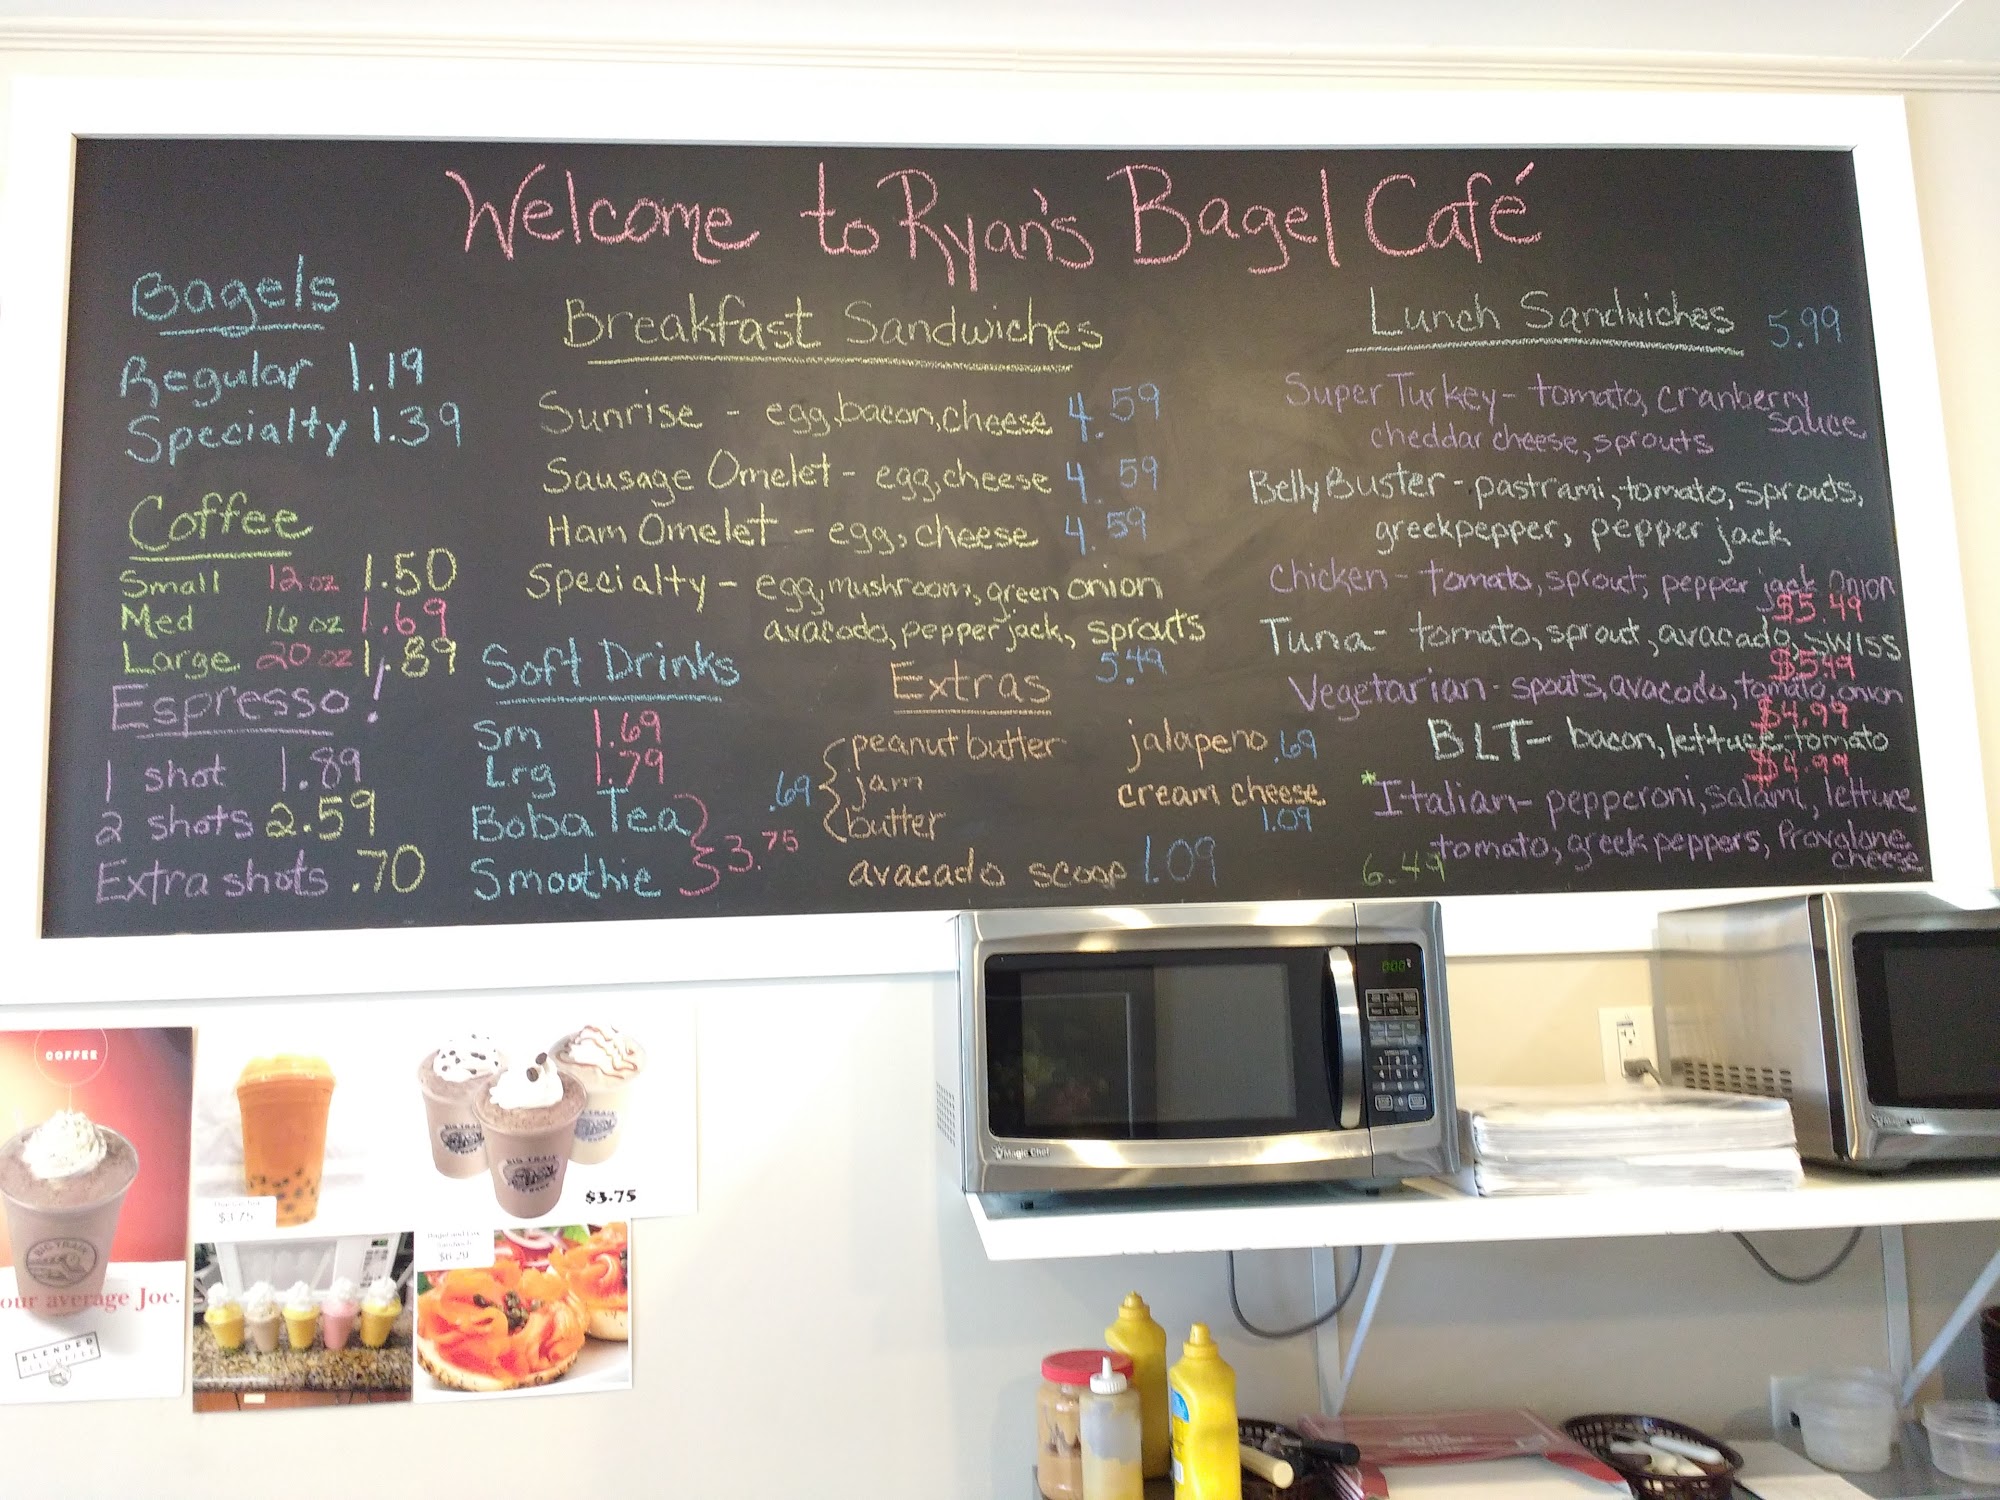 Welcome to Ryan's Bagel Café
Bagels
Regular 1.19
Specialty 1.39
Coffee
Small 12 oz 1.50
Med 16 oz 1.69
Large 20 oz 1.89
Espresso!
1 shot 1.89
2 shots 2.59
Extra shots .70
Breakfast Sandwiches
Sunrise - egg, bacon, cheese 4.59
Sausage Omelet - egg, cheese 4.59
Ham Omelet - egg, cheese 4.59
Specialty - egg, mushroom, green onion
avacodo, pepper jack, sprouts
5.49
Soft Drinks
Sm 1.69
Lrg 1.79
Boba Tea
Smoothie
3.75
Extras
peanut butter
jam
butter
.69
avacado scoop 1.09
jalapeno .69
cream cheese
1.09
Lunch Sandwiches 5.99
Super Turkey - tomato, cranberry
sauce
cheddar cheese, sprouts
Belly Buster - pastrami, tomato, sprouts,
greek pepper, pepper jack
Chicken - tomato, sprout, pepper jack onion
$5.49
Tuna - tomato, sprout, avacado, swiss
$5.49
Vegetarian - spouts, avacodo, tomato, onion
$4.99
BLT - bacon, lettuce, tomato
$4.99
*Italian - pepperoni, salami, lettuce
tomato, greek peppers, Provolone
cheese
6.49
COFFEE
BIG TRAIN
our average Joe.
BLENDED
$3.75
BIG TRAIN
$3.75
Bagel and Lox
Sandwich
$6.29
Magic Chef
Magic Chef